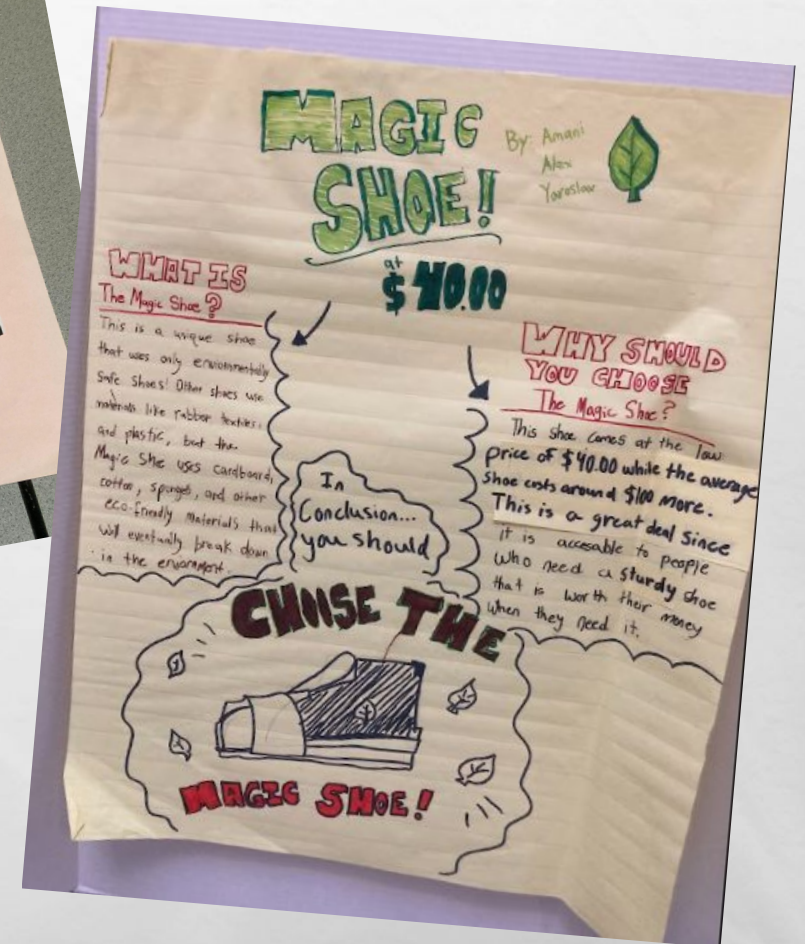 MAGIC
SHOE!
By: Amani
Alex
Yaroslav
at
$40.00
WHAT IS
The Magic Shoe?
This is a unique shoe
that uses only environmentally
Safe Shoes! Other shoes use
materials like rubber textiles
and plastic, but the
Magic Shoe uses cardboard,
cotton, sponges, and other
eco-friendly materials that
will eventually break down
in the enviorment.
WHY SHOULD
YOU CHOOSE
The Magic Shoe?
This shoe comes at the low
price of $40.00 while the average
shoe costs around $100 more.
This is a great deal since
it is accesable to people
who need a sturdy shoe
that is worth their money
when they need it.
In
Conclusion...
you should
CHOOSE THE
MAGIC SHOE!